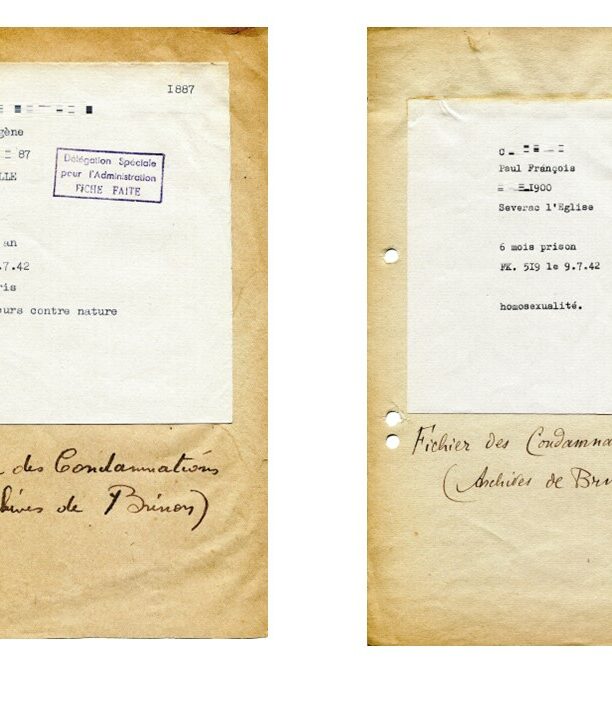 I887
gène
87
Délégation Spéciale
pour l'Administration
FICHE FAITE
LLE
an
.7.42
ris
eurs contre nature
des Condamnations
hives de Brinon)
Paul François
I900
Severac l'Eglise
6 mois prison
FK. 5I9 le 9.7.42
homosexualité.
Fichier des Condamna
(Archives de Brin